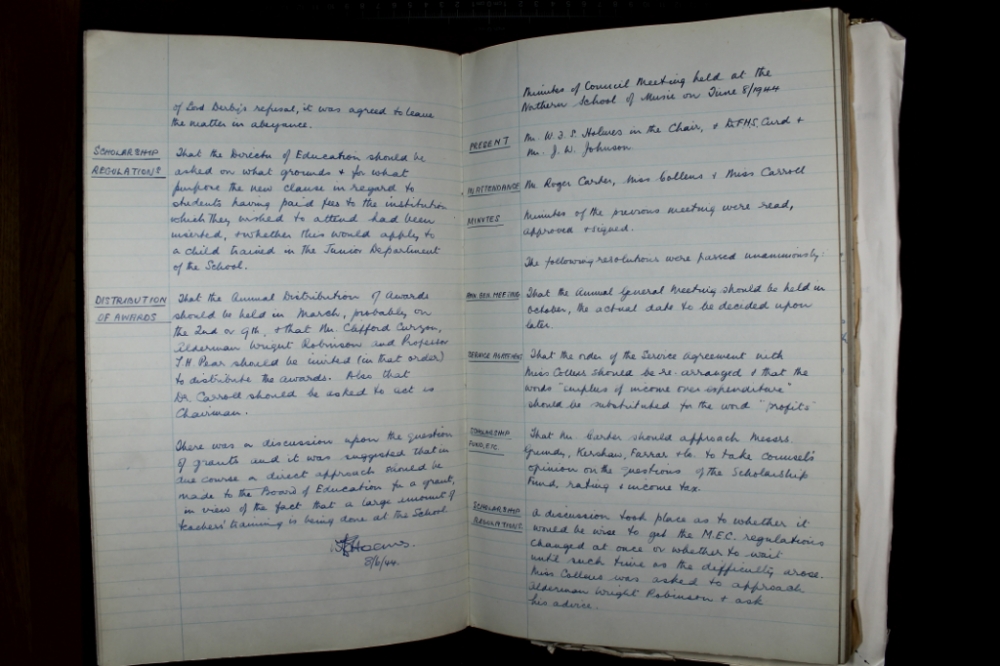 of Lord Derby's refusal, it was agreed to leave
the matter in abeyance.
SCHOLARSHIP
REGULATIONS
That the Director of Education should be
asked on what grounds & for what
purpose the new clause in regard to
students having paid fees to the institution
which they wished to attend had been
inserted, & whether this would apply to
a child trained in the Junior Department
of the School.
DISTRIBUTION
OF AWARDS
That the Annual Distribution of Awards
should be held in March, probably on
the 2nd or 9th, & that Mr. Clifford Curzon,
Alderman Wright Robinson and Professor
T.H. Pear should be invited (in that order)
to distribute the awards. Also that
Dr. Carroll should be asked to act as
Chairman.
There was a discussion upon the question
of grants and it was suggested that in
due course a direct approach should be
made to the Board of Education for a grant,
in view of the fact that a large amount of
teachers' training is being done at the School
8/6/44.
Minutes of Council Meeting held at the
Northern School of Music on June 8/1944
PRESENT
Mr. W. J. S. Holmes in the Chair, & D.F.H.S. Curd &
Mr. J. W. Johnson.
IN ATTENDANCE
Mr Roger Carter, Miss Collens & Miss Carroll
MINUTES
Minutes of the previous meeting were read,
approved & signed.
The following resolutions were passed unanimously:
ANN. GEN. MEETING
That the Annual General Meeting should be held in
October, the actual date to be decided upon
later.
SERVICE AGREEMENT
That the order of the Service Agreement with
Miss Collens should be re-arranged & that the
words "surplus of income over expenditure"
should be substituted for the word "profits"
SCHOLARSHIP
FUND, ETC.
That Mr. Carter should approach Messrs.
Grundy, Kershaw, Farrar & Co. to take counsel's
opinion on the questions of the Scholarship
Fund, rating & income tax.
SCHOLARSHIP
REGULATIONS
A discussion took place as to whether it
would be wise to get the M.E.C. regulations
changed at once or whether to wait
until such time as the difficulty arose.
Miss Collens was asked to approach
Alderman Wright Robinson & ask
his advice.